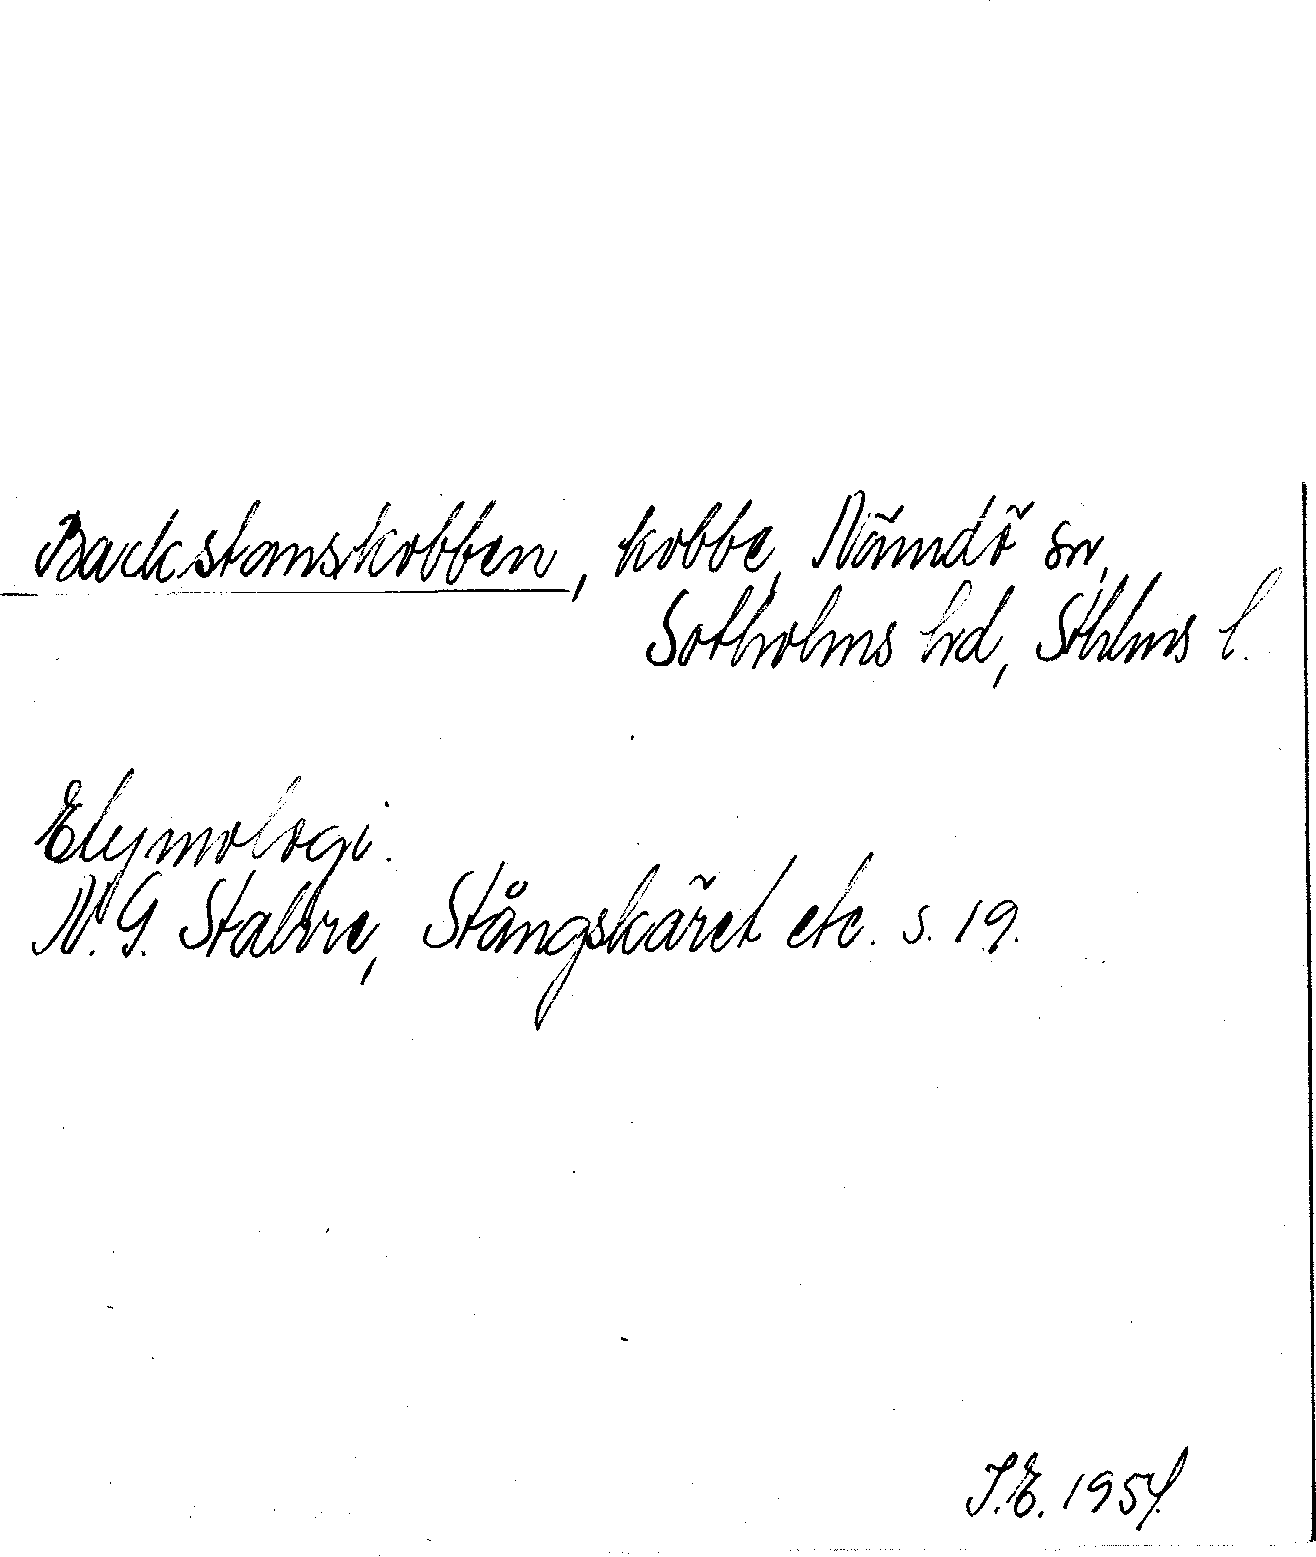 Backstomskobben, kobbe, Nämdö sn,
Sotholms hd, Sthlms l.
Etymologi.
N. G. Stahre, Stångskäret etc. s. 19.
I.E. 1954.